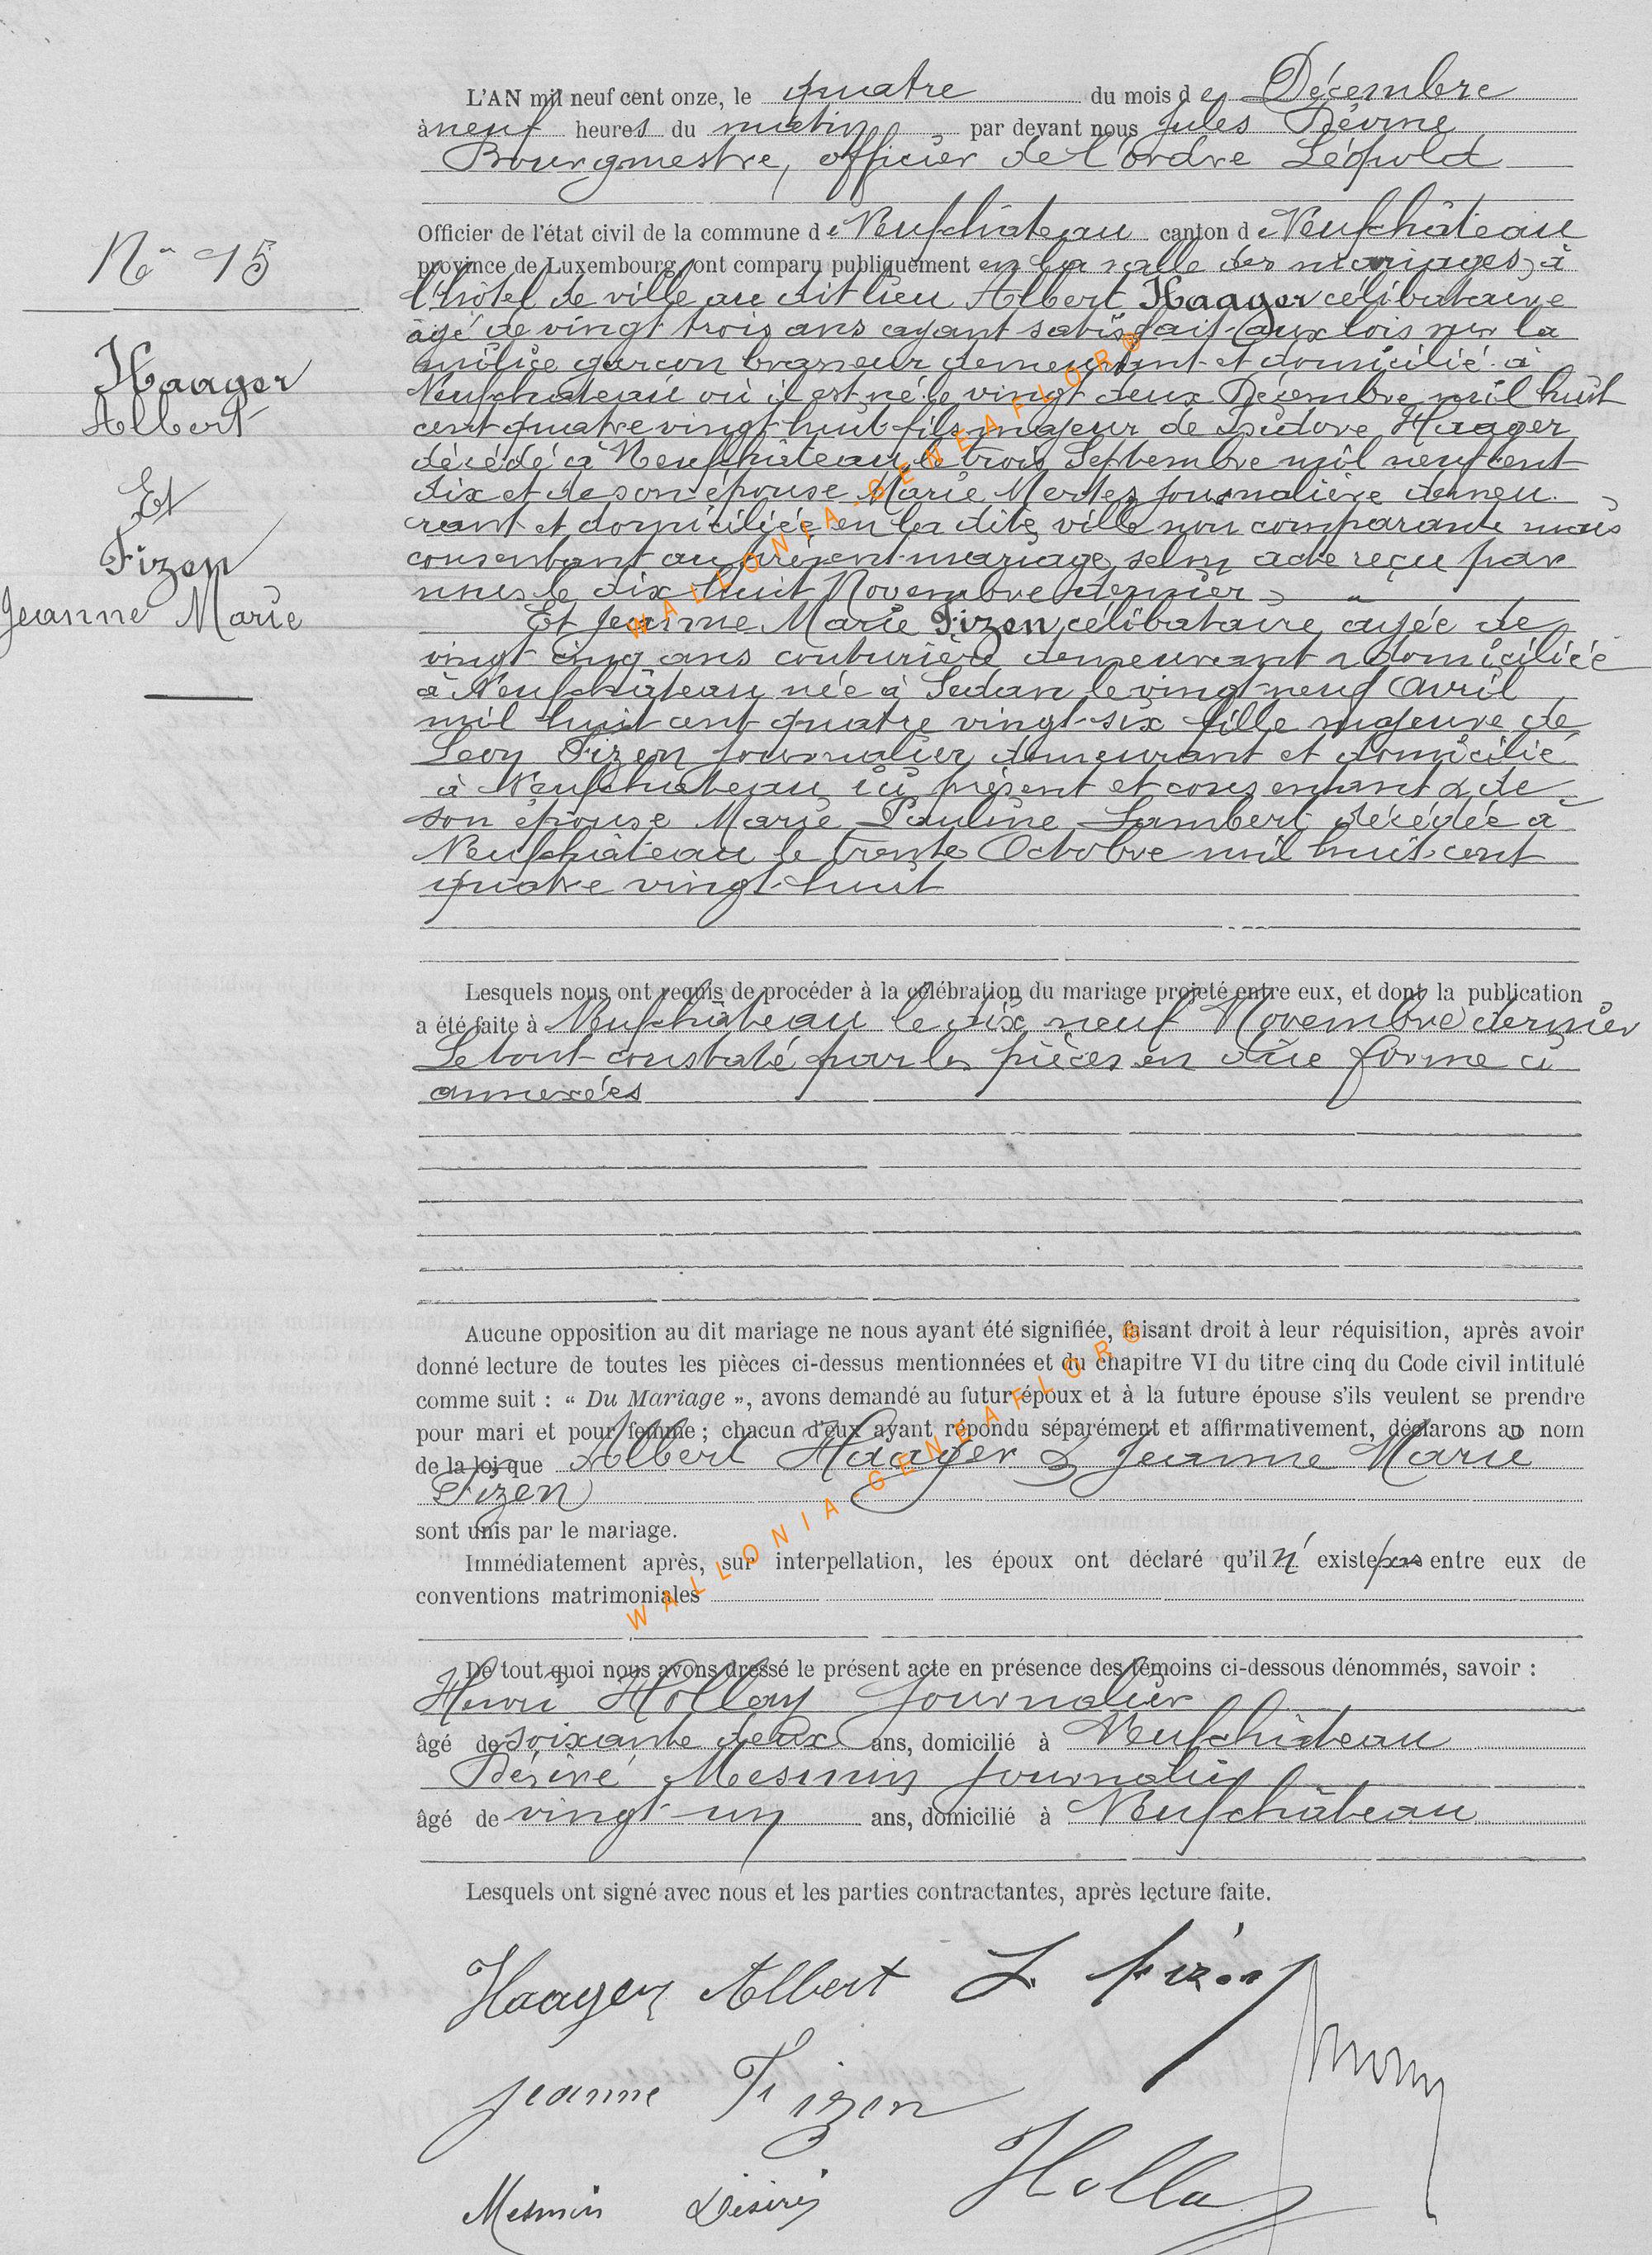 L'AN mil neuf cent onze, le quatre du mois de Décembre
à neuf heures du matin par devant nous Jules
Bourgmestre, officier de l'ordre Léopold
Officier de l'état civil de la commune de Neufchâteau canton de Neufchâteau
province de Luxembourg, ont comparu publiquement en la salle des mariages, à
l'hôtel de ville au dit lieu Albert Haager célibataire
agé de vingt trois ans ayant satisfait aux lois sur la
milice garçon brasseur demeurant et domicilié à
Neufchâteau où il est né le vingt deux Décembre mil huit
cent quatre vingt huit fils majeur de Isidore Haager
décédé à Neufchâteau le trois Septembre mil neuf cent
dix et de son épouse Marie Mertes journalière demeu
rant et domiciliée en la dite ville non comparante mais
consentant au présent mariage selon acte reçu par
nous le dix huit Novembre dernier
Et Jeanne Marie Fizen, célibataire, agée de
vingt cinq ans couturière demeurant & domiciliée
à Neufchâteau née à Sedan le vingt-neuf Avril
mil huit cent quatre vingt-six fille majeure de
Léon Fizen journalier demeurant et domicilié
à Neufchâteau ici présent et consentant & de
son épouse Marie Pauline Lambert décédée à
Neufchâteau le trente Octobre mil huit cent
quatre vingt-huit
N° 15
Haager
Albert
Et
Fizen
Jeanne Marie
Lesquels nous ont requis de procéder à la célébration du mariage projeté entre eux, et dont la publication
a été faite à Neufchâteau le dix neuf Novembre dernier
Le tout constaté par les pièces en dûe forme ci
annexées
Aucune opposition au dit mariage ne nous ayant été signifiée, faisant droit à leur réquisition, après avoir
donné lecture de toutes les pièces ci-dessus mentionnées et du chapitre VI du titre cinq du Code civil intitulé
comme suit : « Du Mariage », avons demandé au futur époux et à la future épouse s'ils veulent se prendre
pour mari et pour femme ; chacun d'eux ayant répondu séparément et affirmativement, déclarons au nom
de la loi que Albert Haager & Jeanne Marie
Fizen
sont unis par le mariage.
Immédiatement après, sur interpellation, les époux ont déclaré qu'il n'existe pas entre eux de
conventions matrimoniales
De tout quoi nous avons dressé le présent acte en présence des témoins ci-dessous dénommés, savoir :
Henri Hollay journalier
âgé de soixante deux ans, domicilié à Neufchâteau
Désiré Mesmin journalier
âgé de vingt-un ans, domicilié à Neufchâteau
Lesquels ont signé avec nous et les parties contractantes, après lecture faite.
Haager Albert L. Fizen
Jeanne Fizen
Mesmin Désiré Hollay
WALLONIA-GENEAFLOR©
WALLONIA-GENEAFLOR©